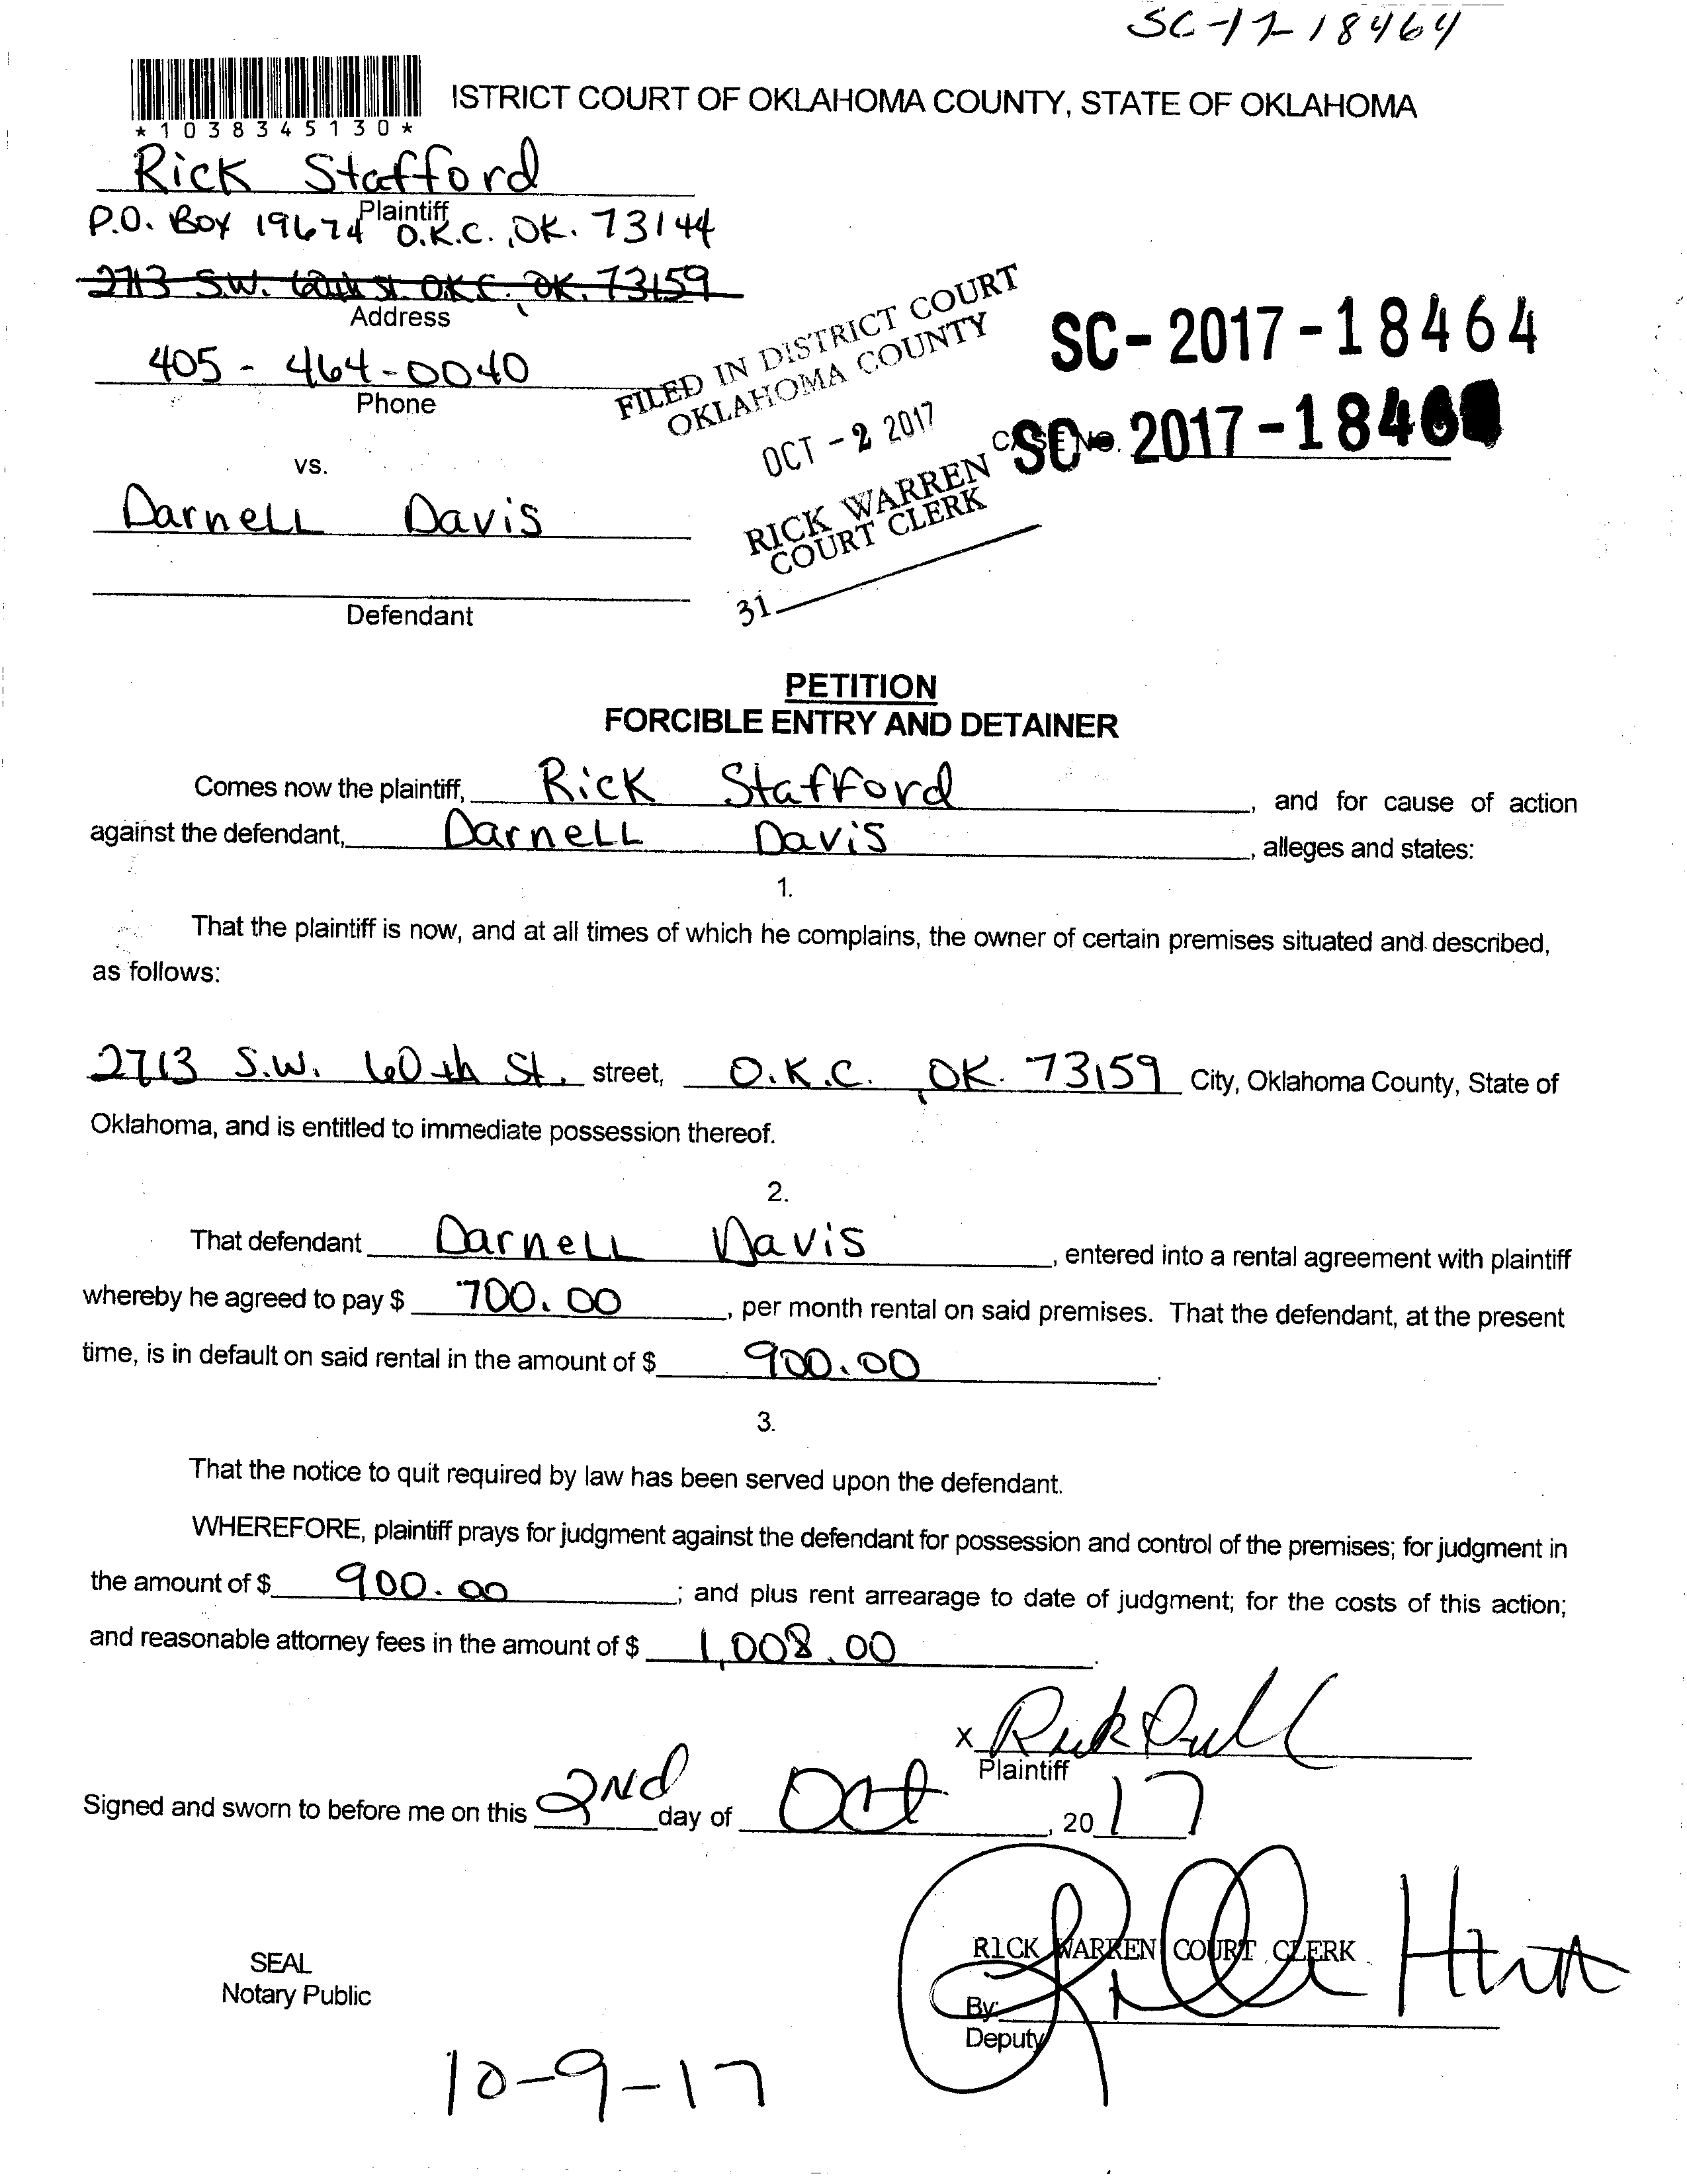 SC-17-18464
ISTRICT COURT OF OKLAHOMA COUNTY, STATE OF OKLAHOMA
*1038345130*
Rick Stafford
Plaintiff
P.O. Box 19674 O.K.C., OK. 73144
2713 S.W. 60th St. O.K.C., OK. 73159
Address
405-464-0040
Phone
FILED IN DISTRICT COURT
OKLAHOMA COUNTY
OCT - 2 2017
RICK WARREN
COURT CLERK
31
SC-2017-18464
CASE NO.
SC-2017-1846
vs.
Darnell Davis
Defendant
PETITION
FORCIBLE ENTRY AND DETAINER
Comes now the plaintiff, Rick Stafford, and for cause of action
against the defendant, Darnell Davis, alleges and states:
1.
That the plaintiff is now, and at all times of which he complains, the owner of certain premises situated and described,
as follows:
2713 S.W. 60th St. street, O.K.C., OK. 73159 City, Oklahoma County, State of
Oklahoma, and is entitled to immediate possession thereof.
2.
That defendant Darnell Davis, entered into a rental agreement with plaintiff
whereby he agreed to pay $ 700.00, per month rental on said premises. That the defendant, at the present
time, is in default on said rental in the amount of $ 900.00.
3.
That the notice to quit required by law has been served upon the defendant.
WHEREFORE, plaintiff prays for judgment against the defendant for possession and control of the premises; for judgment in
the amount of $ 900.00; and plus rent arrearage to date of judgment; for the costs of this action;
and reasonable attorney fees in the amount of $ 1,008.00.
X
Plaintiff
Signed and sworn to before me on this 2nd day of Oct, 20 17
RICK WARREN COURT CLERK
SEAL
Notary Public
By:
Deputy
10-9-17